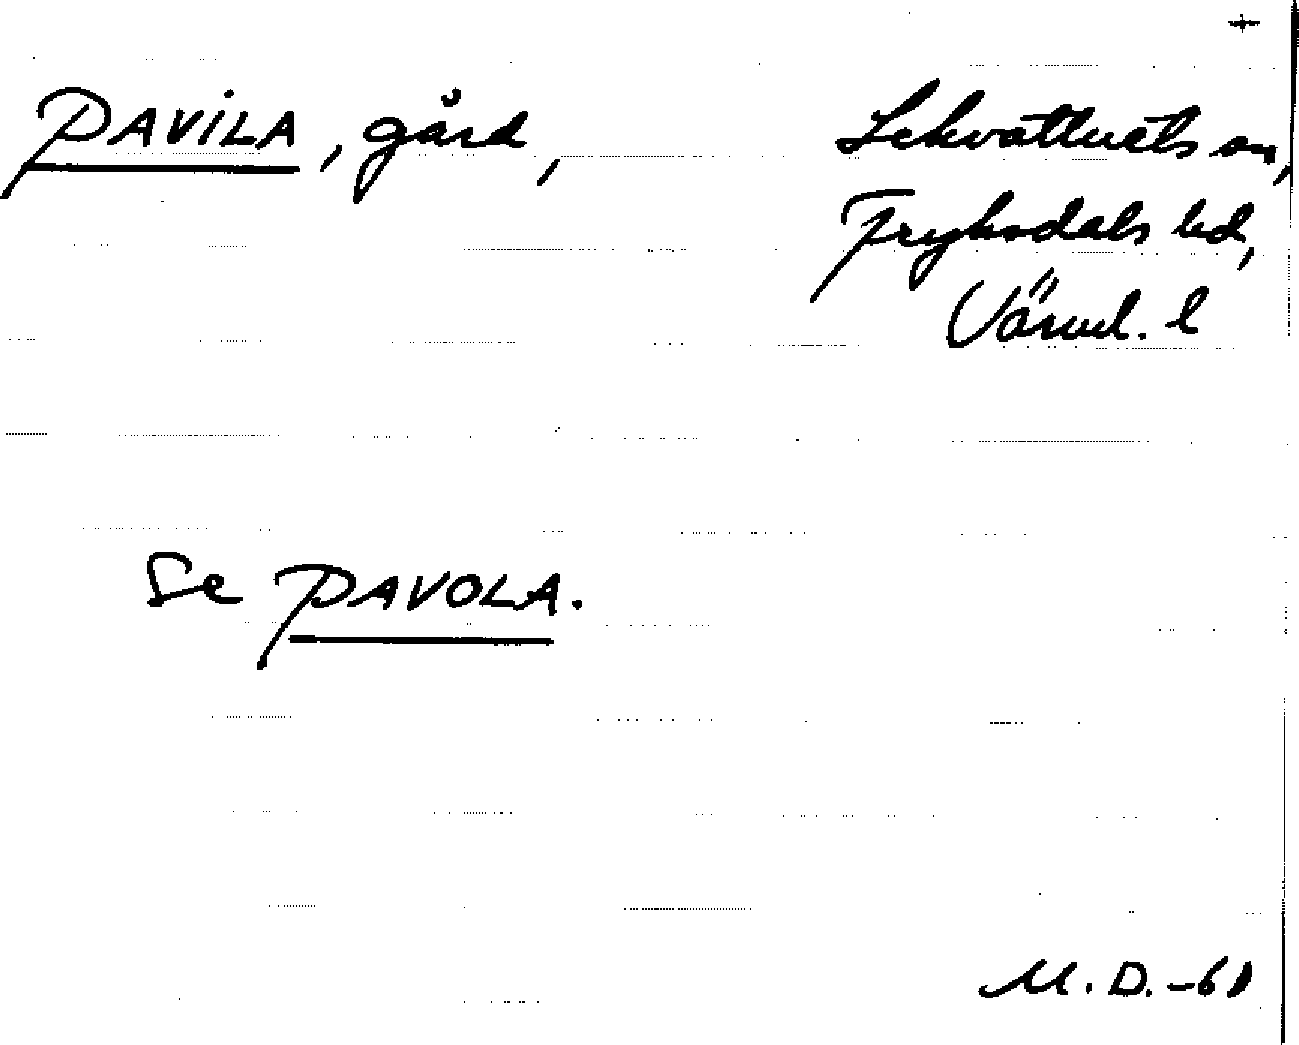 +
PAVILA, gård, Lekvattnets sn,
Fryksdals hd,
Värml. l
Se PAVOLA.
M.D.-61